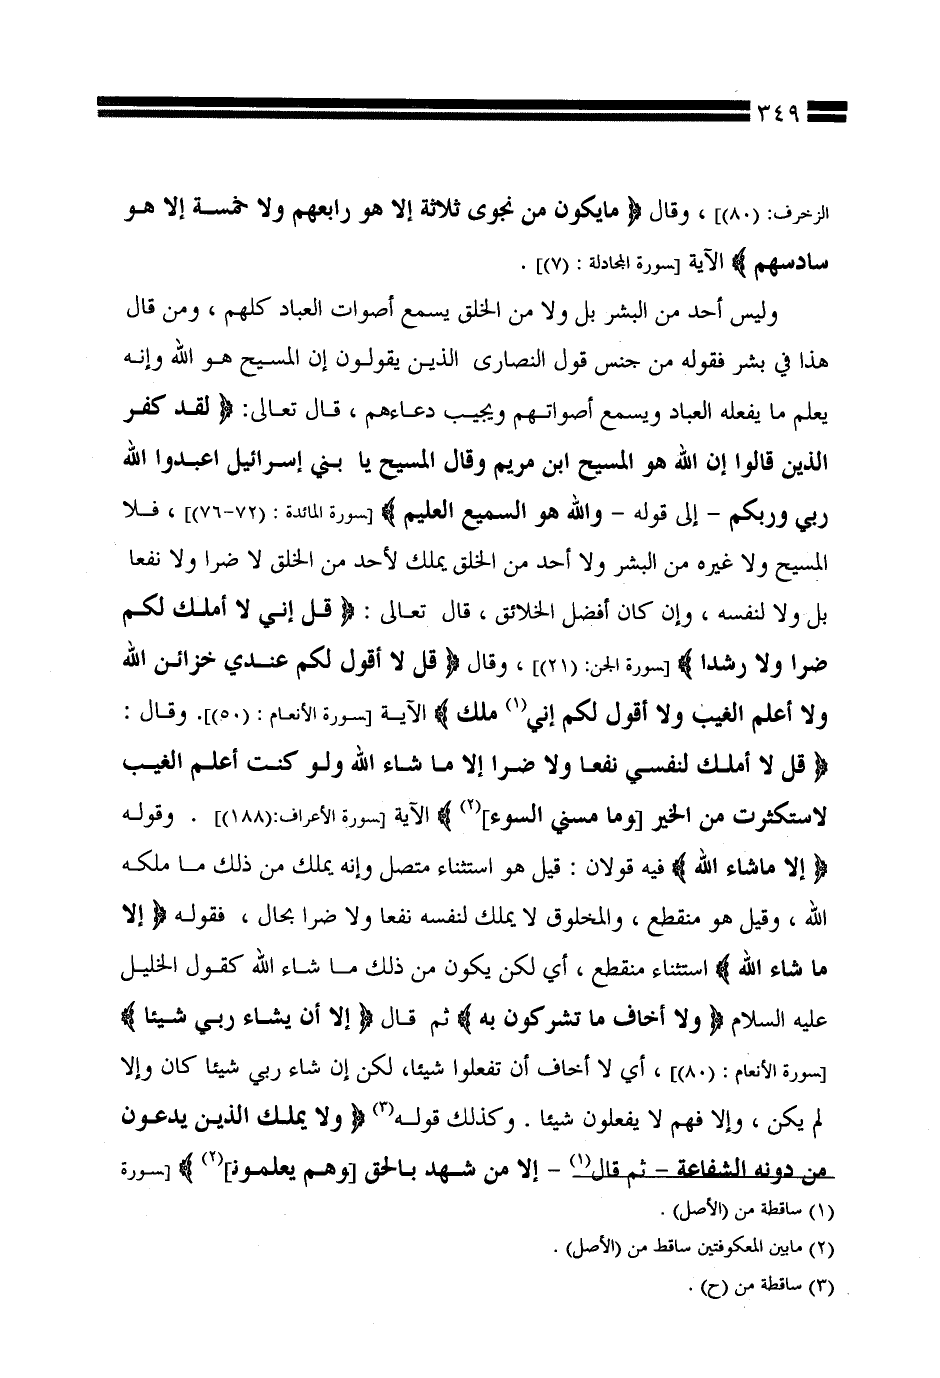 ٣٤٩
الزخرف: (٨٠)] ، وقال ﴿ مايكون من نجوى ثلاثة إلا هو رابعهم ولا خمسة إلا هو
سادسهم ﴾ الآية [سورة المجادلة : (٧)] .
وليس أحد من البشر بل ولا من الخلق يسمع أصوات العباد كلهم ، ومن قال
هذا في بشر فقوله من جنس قول النصارى الذين يقولون إن المسيح هو الله وإنه
يعلم ما يفعله العباد ويسمع أصواتهم ويجيب دعاءهم ، قال تعالى: ﴿ لقد كفر
الذين قالوا إن الله هو المسيح ابن مريم وقال المسيح يا بني إسرائيل اعبدوا الله
ربي وربكم – إلى قوله – والله هو السميع العليم ﴾ [سورة المائدة : (٧٢-٧٦)] ، فلا
المسيح ولا غيره من البشر ولا أحد من الخلق يملك لأحد من الخلق لا ضرا ولا نفعا
بل ولا لنفسه ، وإن كان أفضل الخلائق ، قال تعالى : ﴿ قل إني لا أملك لكم
ضرا ولا رشدا ﴾ [سورة الجن: (٢١)] ، وقال ﴿ قل لا أقول لكم عندي خزائن الله
ولا أعلم الغيب ولا أقول لكم إني(١) ملك ﴾ الآية [سورة الأنعام : (٥٠)]. وقال :
﴿ قل لا أملك لنفسي نفعا ولا ضرا إلا ما شاء الله ولو كنت أعلم الغيب
لاستكثرت من الخير [وما مسني السوء](٢) ﴾ الآية [سورة الأعراف:(١٨٨)] . وقوله
﴿ إلا ماشاء الله ﴾ فيه قولان : قيل هو استثناء متصل وإنه يملك من ذلك ما ملكه
الله ، وقيل هو منقطع ، والمخلوق لا يملك لنفسه نفعا ولا ضرا بحال ، فقوله ﴿ إلا
ما شاء الله ﴾ استثناء منقطع ، أي لكن يكون من ذلك ما شاء الله كقول الخليل
عليه السلام ﴿ ولا أخاف ما تشركون به ﴾ ثم قال ﴿ إلا أن يشاء ربي شيئا ﴾
[سورة الأنعام : (٨٠)] ، أي لا أخاف أن تفعلوا شيئا، لكن إن شاء ربي شيئا كان وإلا
لم يكن ، وإلا فهم لا يفعلون شيئا . وكذلك قوله(٣) ﴿ ولا يملك الذين يدعون
من دونه الشفاعة – ثم قال(١) – إلا من شهد بالحق [وهم يعلمون](٢) ﴾ [سورة
(١) ساقطة من (الأصل) .
(٢) مابين المعكوفتين ساقط من (الأصل) .
(٣) ساقطة من (ح) .